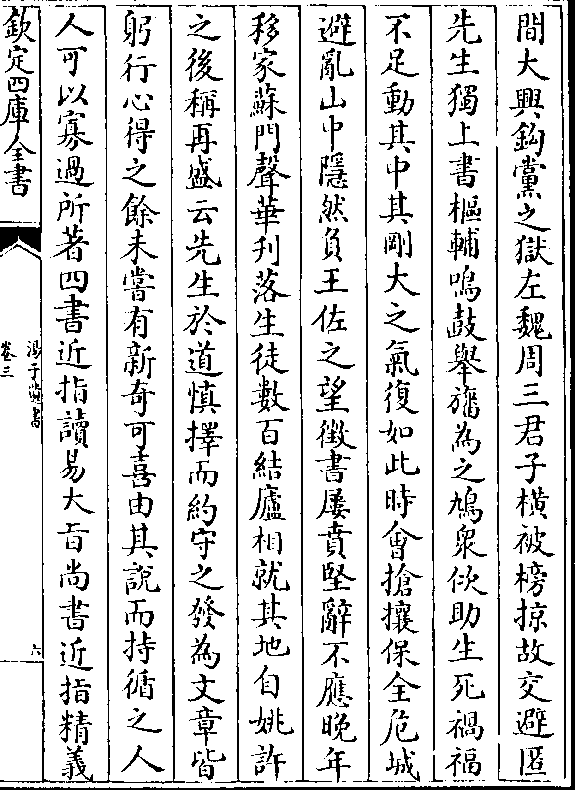 間大興鈎黨之獄左魏周三君子橫被榜掠故交避匿
先生獨上書樞輔鳴鼓舉旛為之鳩衆佽助生死禍福
不足動其中其剛大之氣復如此時會搶攘保全危城
避亂山中隱然負王佐之望徵書屢賁堅辭不應晚年
移家蘇門聲華刋落生徒數百結廬相就其地自姚許
之後稱再盛云先生於道慎擇而約守之發為文章皆
躬行心得之餘未嘗有新奇可喜由其說而持循之人
人可以寡過所著四書近指讀易大旨尚書近指精義
欽定四庫全書
湯子遺書
卷三
六